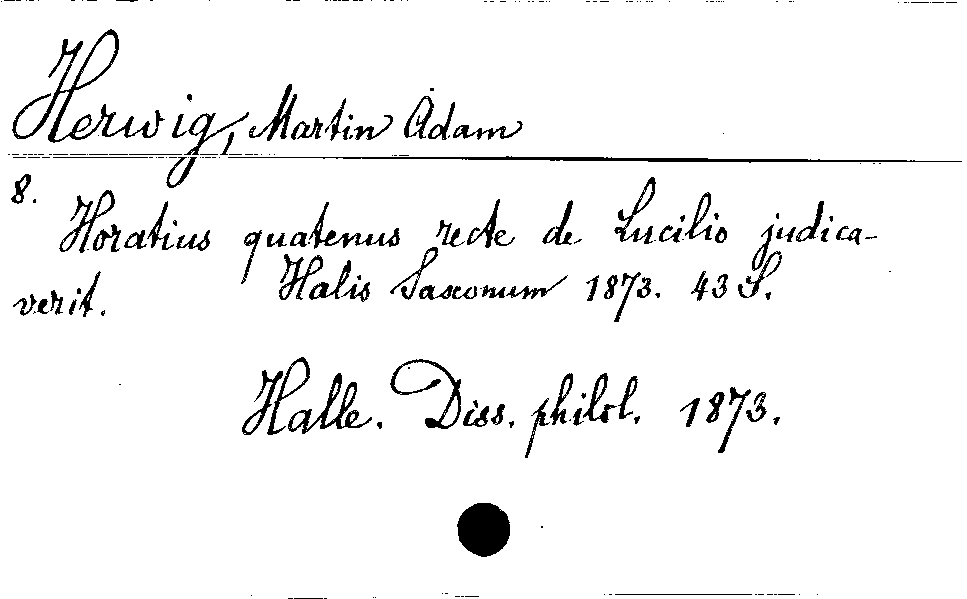 Herwig, Martin Adam
8.
Horatius quatenus recte de Lucilio judica-
verit. Halis Saxonum 1873. 43 S.
Halle. Diss. philol. 1873.